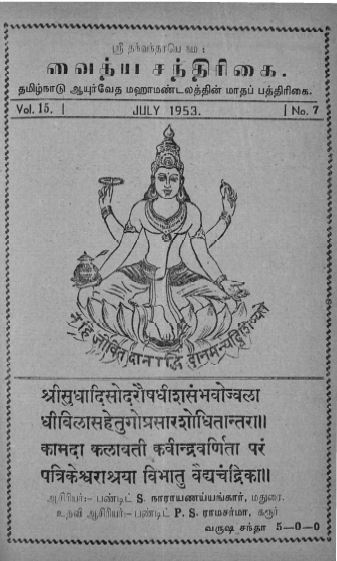 ஸ்ரீ தந்வந்தரயே நம:
வைத்ய சந்திரிகை.
தமிழ்நாடு ஆயுர்வேத மஹாமண்டலத்தின் மாதப் பத்திரிகை.
Vol. 15. | JULY 1953. | No. 7
न हि जीवितदानाद्धि दानमन्यद्विशिष्यते
श्रीसुधादिसोदरौषधीशसंभवोज्वला
धीविलासहेतुगोप्रसारशोधितान्तरा॥
कामदा कलावती कवीन्द्रवर्णिता परं
पत्रिकेश्वराश्रया विभातु वैद्यचंद्रिका॥
ஆசிரியர்:- பண்டிட் S. நாராயணய்யங்கார், மதுரை.
உதவி ஆசிரியர்:- பண்டிட் P. S. ராமசர்மா, கரூர்
வருஷ சந்தா 5-0-0